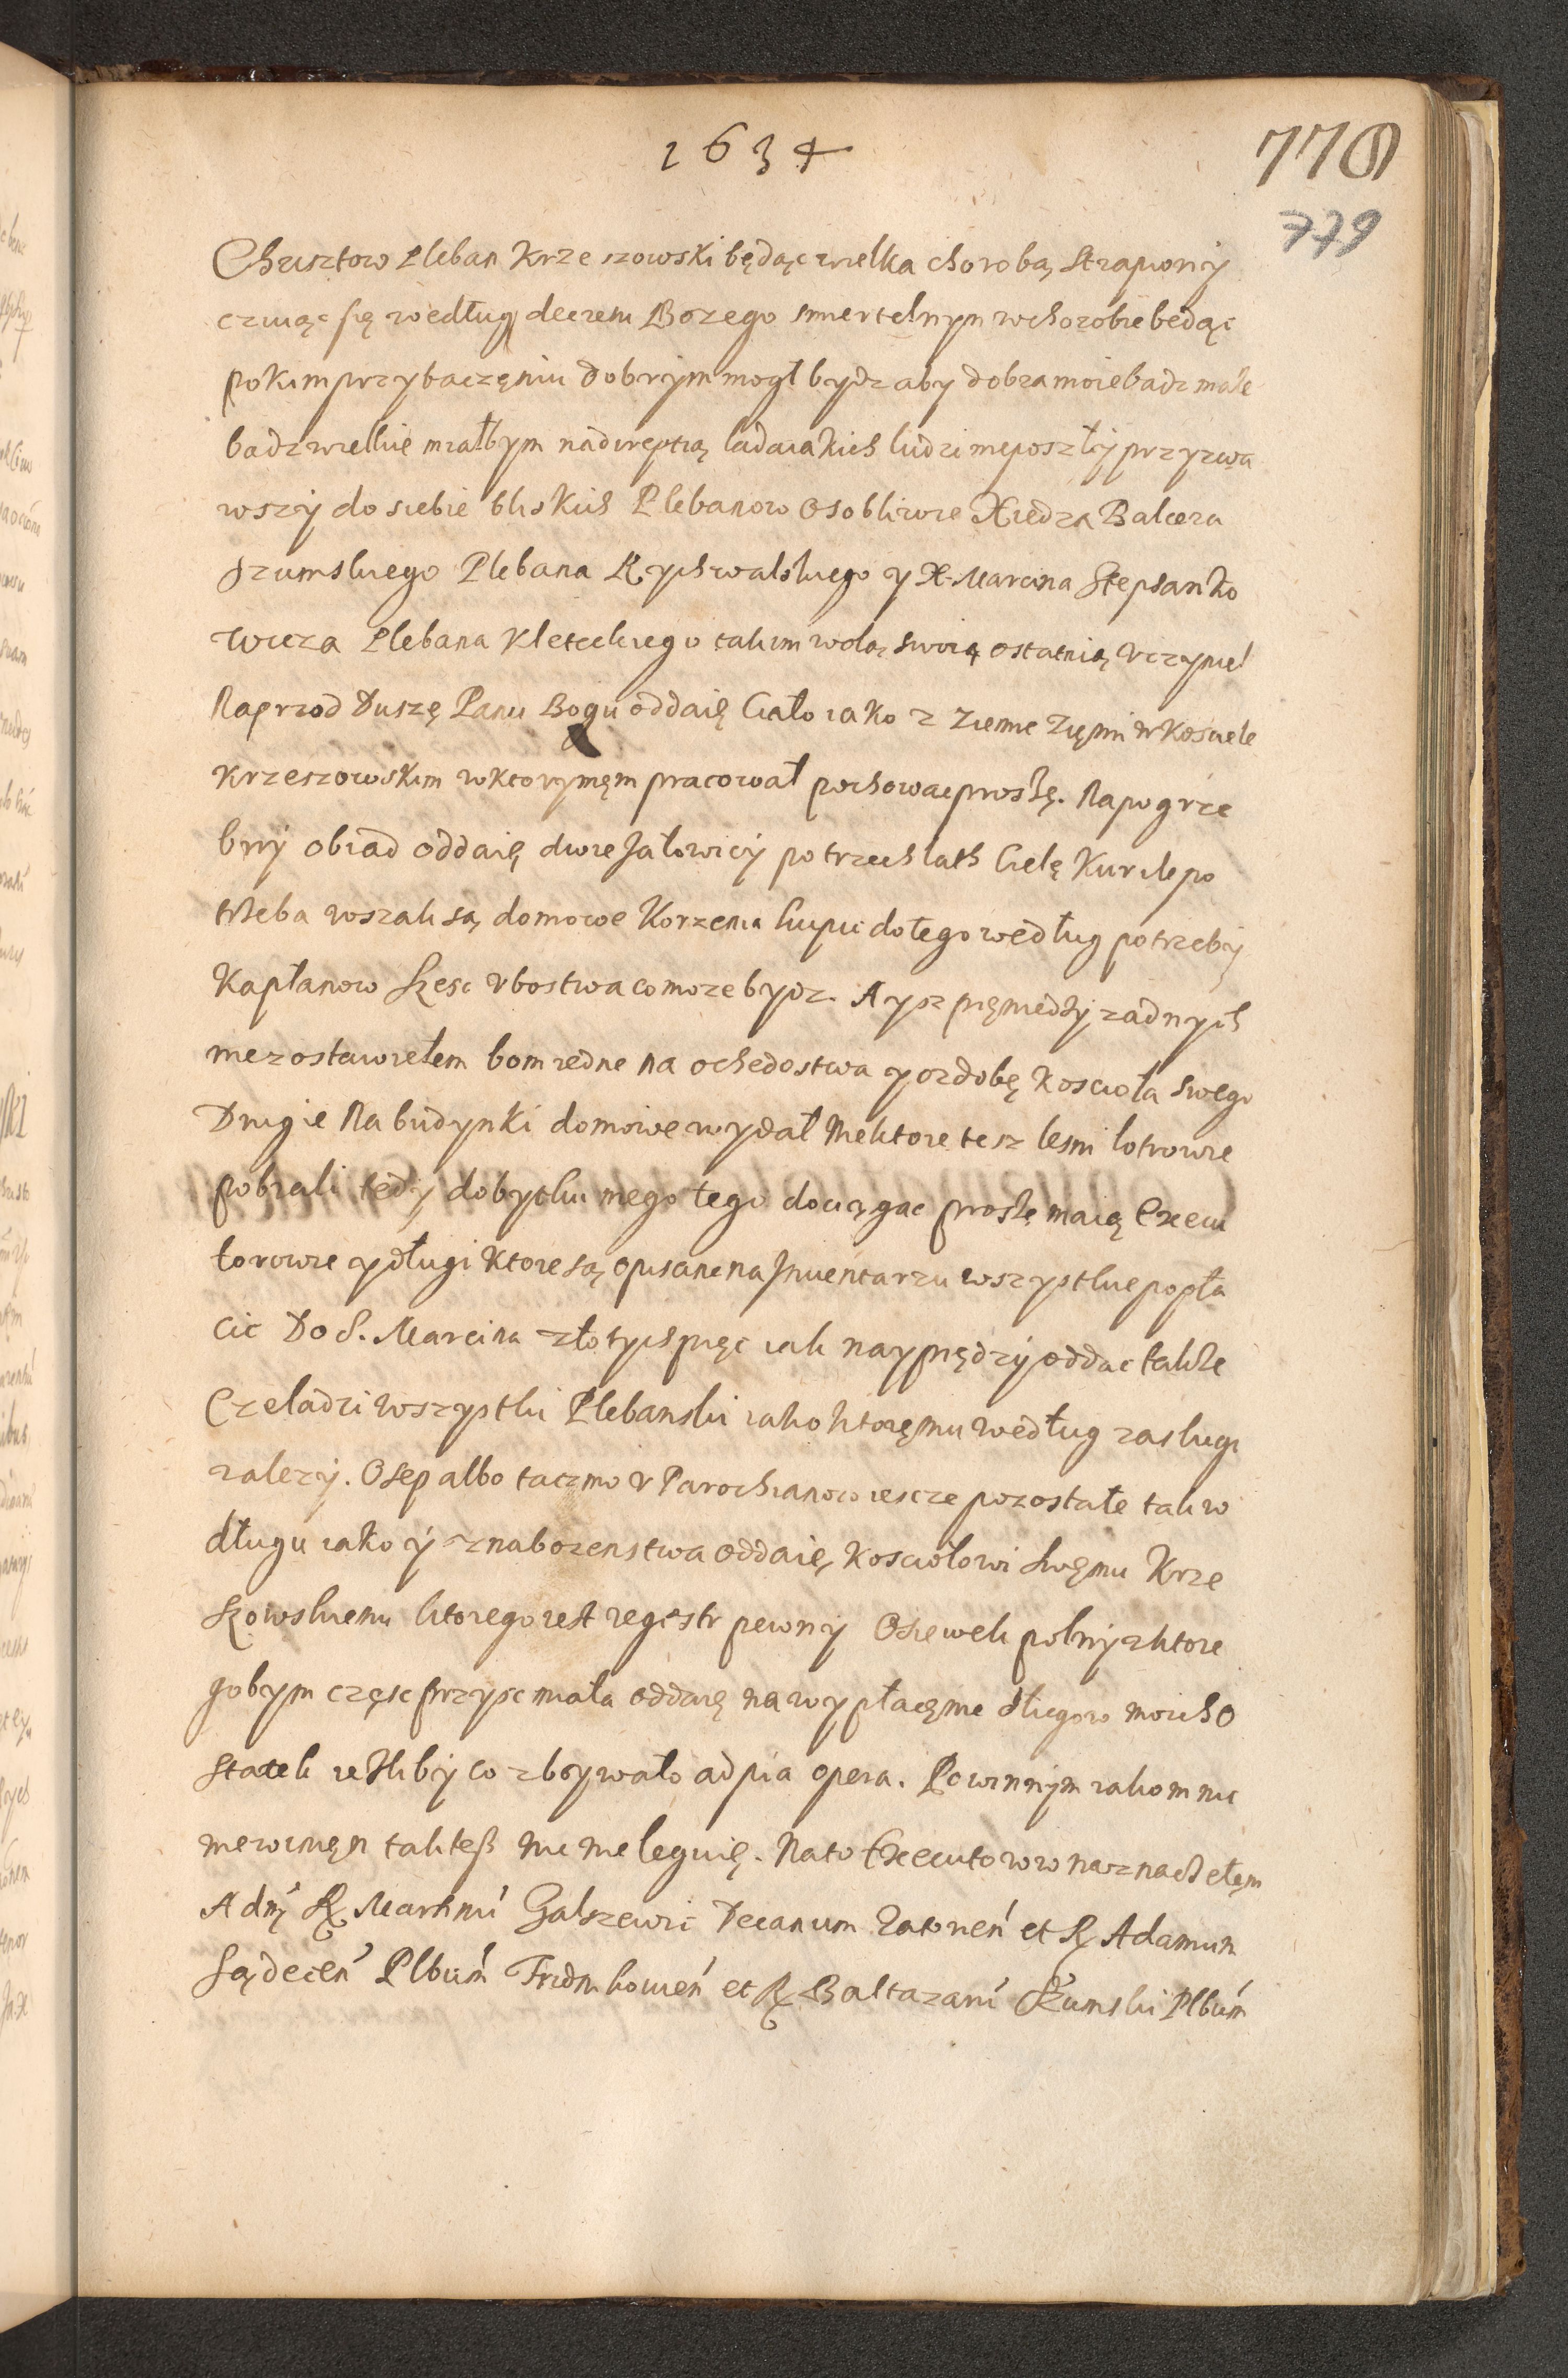 1634
778
779
Chrisztow Pleban Krzeszowski będąc wielka chorobą, strapiony
czuiąc się według decretu Bozego smiertelnym w chorobie bedąc
pokim przy baczęniu dobrym mogł bydz aby dobra moie badz małe
badz wielkie miałbym ladaiakich ludzi nieposzły przyzwa
wszy do siebie bliskich Plebanow osobliwie Xiedza Balcera
Szumskiego Plebana Rychwalskiego y X. Marcina Stephanko
wicza Plebana Kleteckiego takim wolą swoią ostatnią vczynieł
Naprzod Duszę Panu Bogu oddaię Ciało iako z Zięmie Zięmi w Kosciele
Krzeszowskim w ktorymęm pracował pochowac proszę. Na pogrze
bny obiad oddaię dwie Jałowicy po trzech lath Cielę Kur ile po
trzeba wszak są domowe Korzenia kupic do tego według potrzeby
Kapłanow szesc vbostwa co moze bydz. A ysz pięniedzy zadnych
niezostawiełem bom iedne na ochedostwa y ozdobę Koscioła swego
Drugie Na budynki domowe wydał Niektore tesz lesni lotrowie
pobrali tedy dobytku mego tego dociągac proszę maią Execu
torowie y długi ktore są opisane na Inuentarzu wszystkie popła
cic Do S. Marcina złotych pięc iak nayprędzy oddac takze
Czeladzi wszystki Plebanski iako ktoręmu według zaslugi
zalezy. Osep albo taczmo v Parochianow iescze pozostałe tak w
długu iako y z nabozenstwa oddaię, Kosciołowi swęmu Krze
szowskiemu ktorego iest regestr pewny Osiewek polny z ktore
gobym częsc przysc miała oddaię na wypłacęnie długow moich o
statek iezliby co zbywało ad pia opera. Powinnym iakom nic
niewinięn taktesz nic nieleguię. Na to Executorow naznaczełęm
Admֺ R. Martinú Galszewic Decanum Zatorień et R. Adamum
Sądecień Plbúm et R. Baltazarú Szumski Plbúm